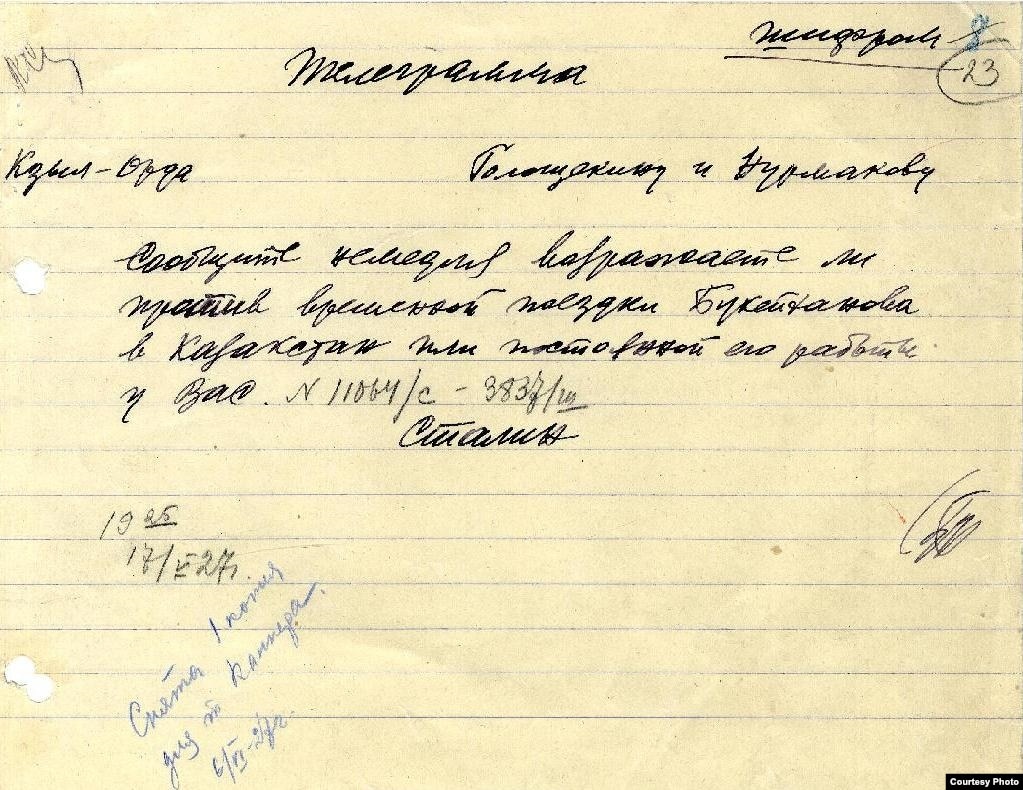 шифром
23
Телеграмма
Кзыл-Орда Голощекину и Нурмакову
Сообщите немедля возражаете ли
против временной поездки Букейханова
в Казакстан или постоянной его работы
у Вас. N 11064/с - 3837/ш
Сталин
19 25
17/VI 27г.
Снята 1 копия
для т Каннера.
6/VI-27г.
Courtesy Photo